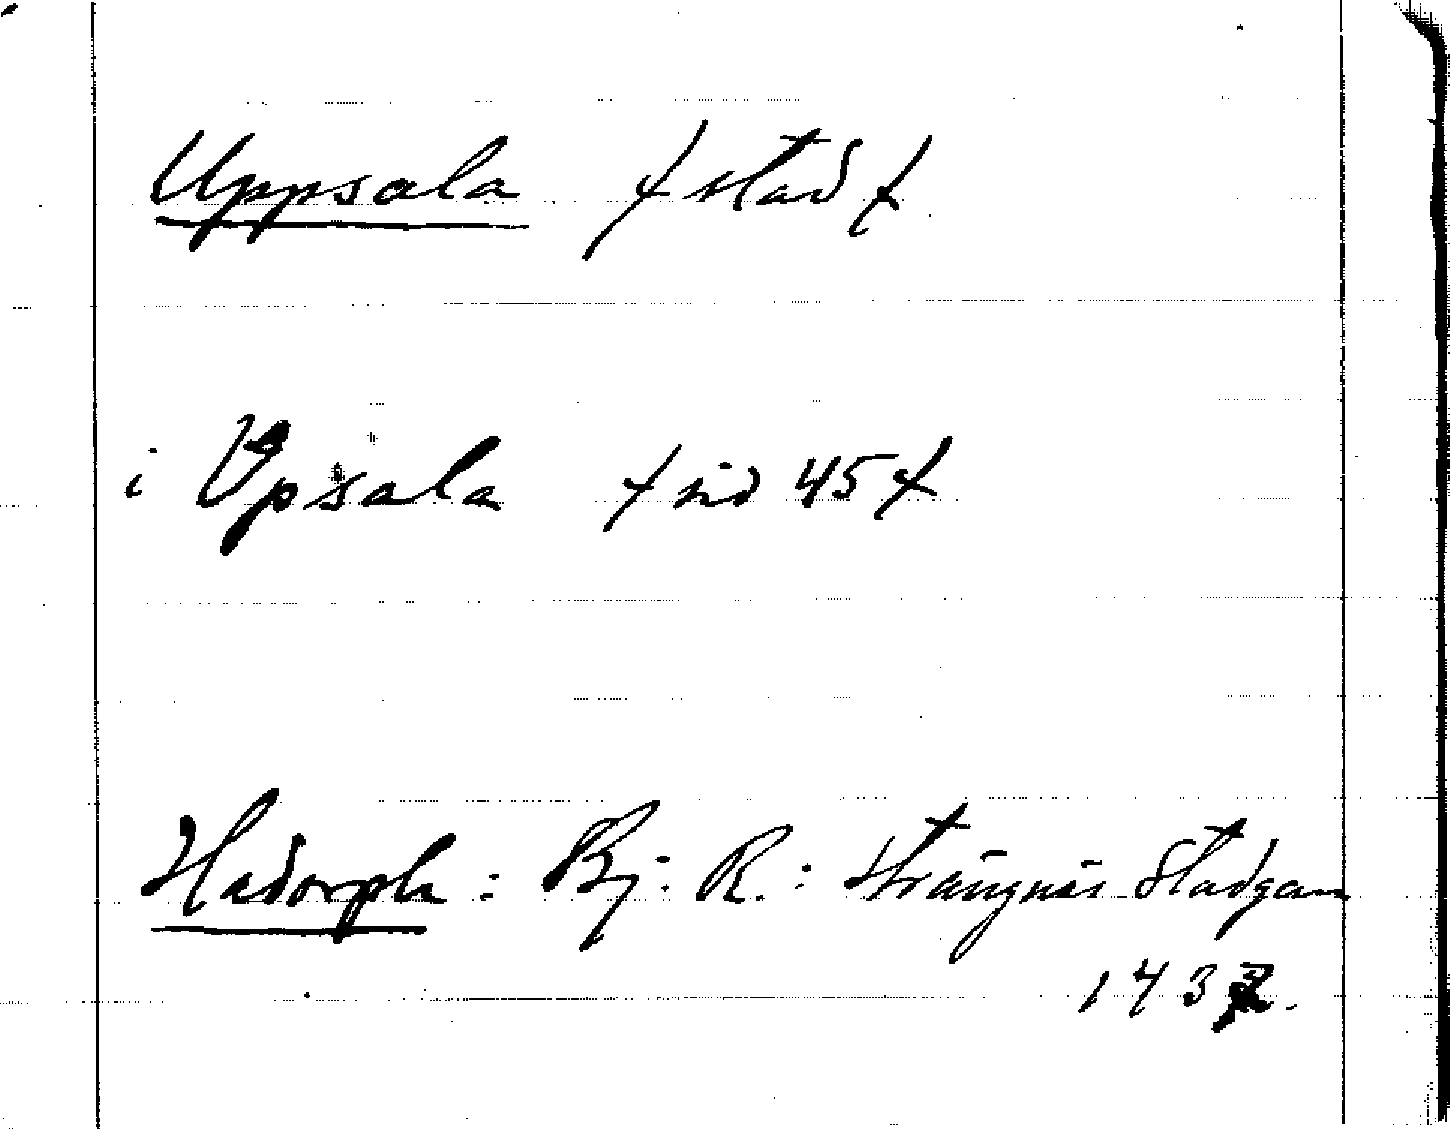 Uppsala / stad /
i Upsala / sid 45 /
Hadorph : Bj. R. : Strängnäs Stadgan
1437.